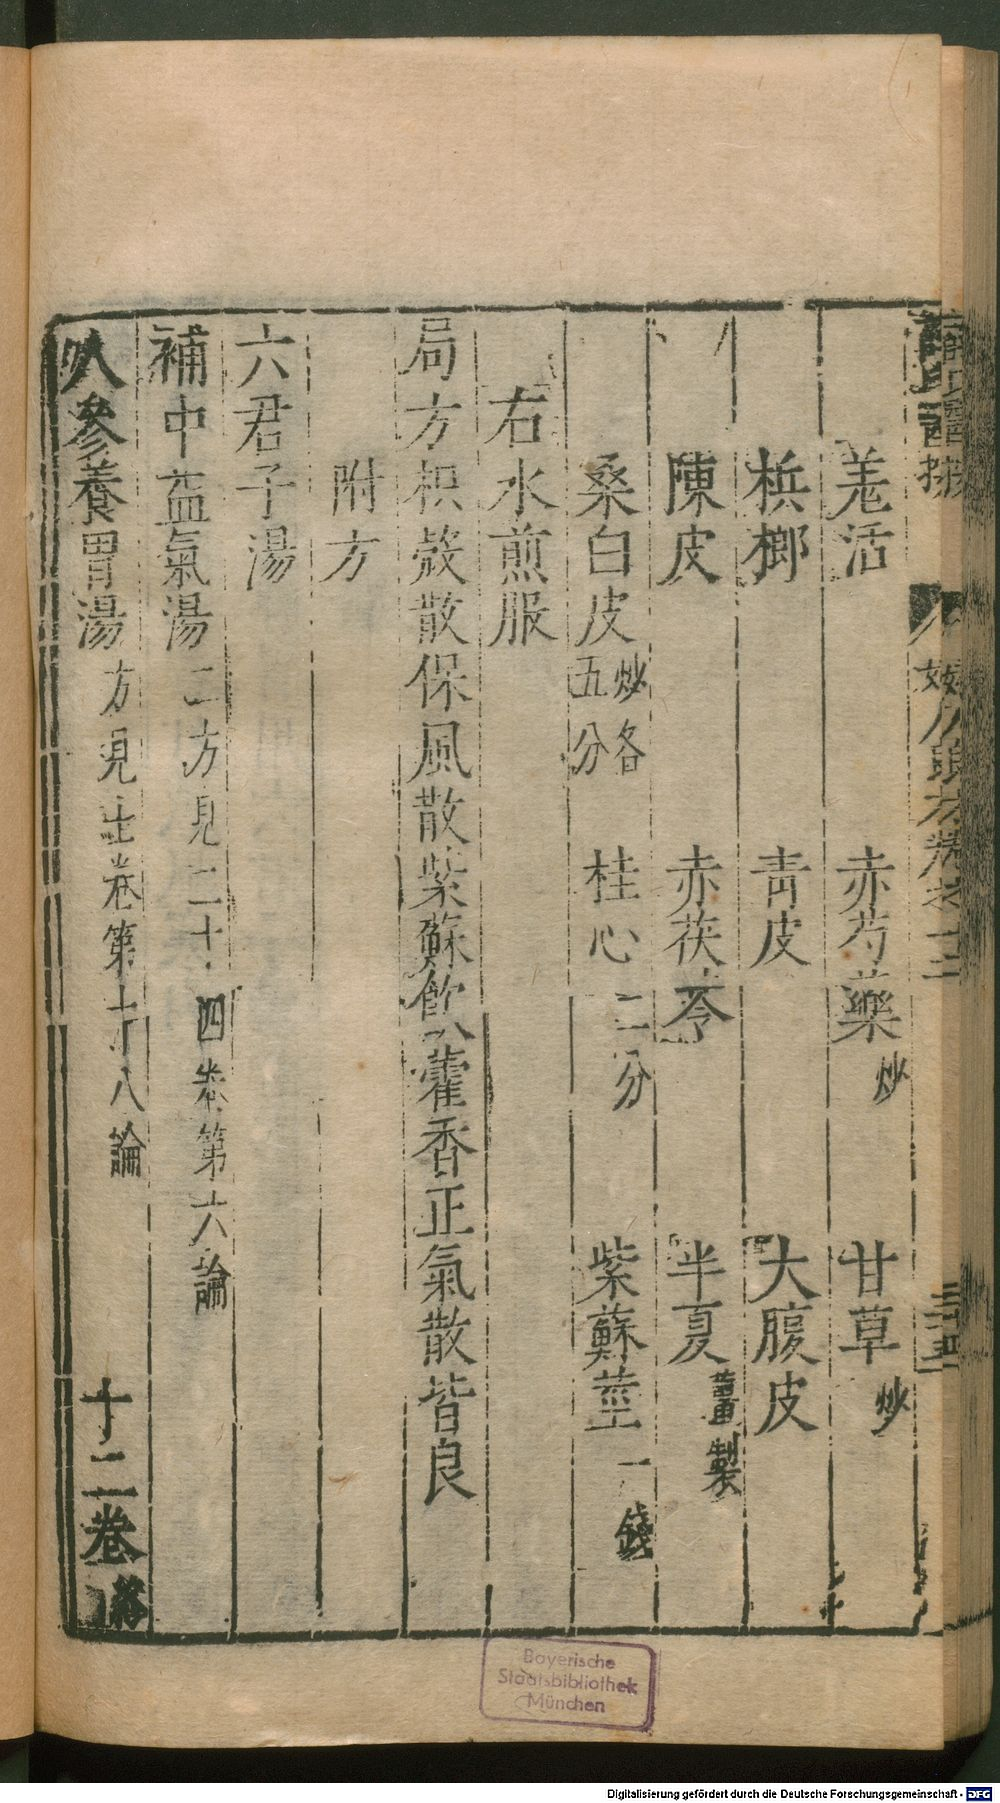 薛氏醫按 婦人良方卷之十二 三十四
羗活 赤芍藥炒 甘草炒
檳榔 青皮 大腹皮
陳皮 赤茯苓 半夏薑製
桑白皮炒各五分 桂心二分 紫蘇莖一錢
右水煎服
局方枳殼散保風散紫蘇飲藿香正氣散皆良
附方
六君子湯
補中益氣湯二方見二十四卷第六論
人參養胃湯方見 卷第十八論 十二卷終
Bayerische
Staatsbibliothek
München
Digitalisierung gefördert durch die Deutsche Forschungsgemeinschaft - DFG